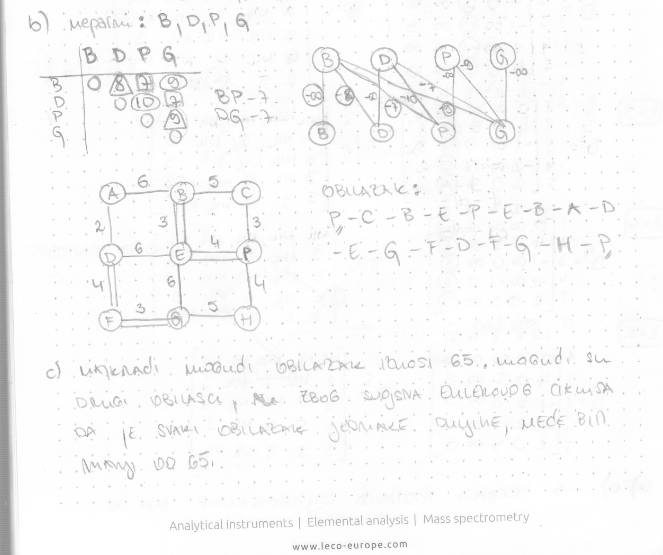 b) neparni: B, D, P, G
B D P G
B 0 8 7 9
D 0 10 7
P 0 9
G 0
BP-7
DG-7
B D P G
-∞ -8 -∞ -7 -10 -7 -∞ -9 -∞
B D P G
A 6 B 5 C
2 3 3
D 6 E 4 P
4 6 4
F 3 G 5 H
OBILAZAK:
P-C-B-E-P-E-B-A-D
-E-G-F-D-F-G-H-P
c) najkraći mogući obilazak iznosi 65, mogući su
drugi obilasci, ali zbog svojstva Eulerovog ciklusa
da je svaki obilazak jednake duljine, neće biti
manji od 65.
Analytical instruments | Elemental analysis | Mass spectrometry
www.leco-europe.com